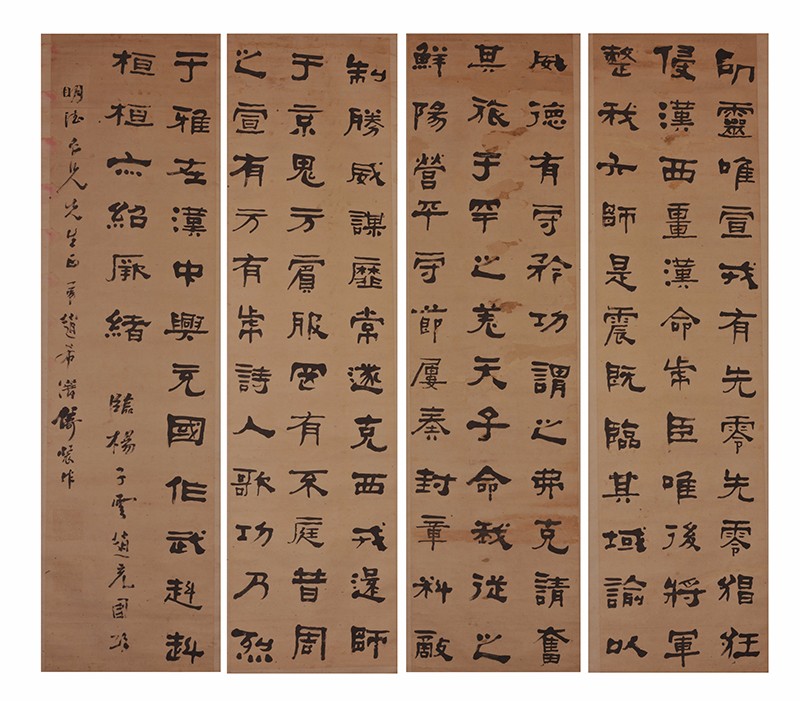 明靈唯宣戎有先零先零猖狂
侵漢西畺漢命虎臣唯後將軍
整我六師是震既臨其域諭以
威德有守矜功謂之弗克請奮
其旅于罕之羌天子命我從之
鮮陽營平守節屢奏封章料敵
制勝威謀靡常遂克西戎還師
于京鬼方賓服罔有不庭昔周
之宣有方有虎詩人歌功乃列
于雅在漢中興充國作武赳赳
桓桓亦紹厥緒 臨楊子雲趙充國頌
明德仁兄先生正